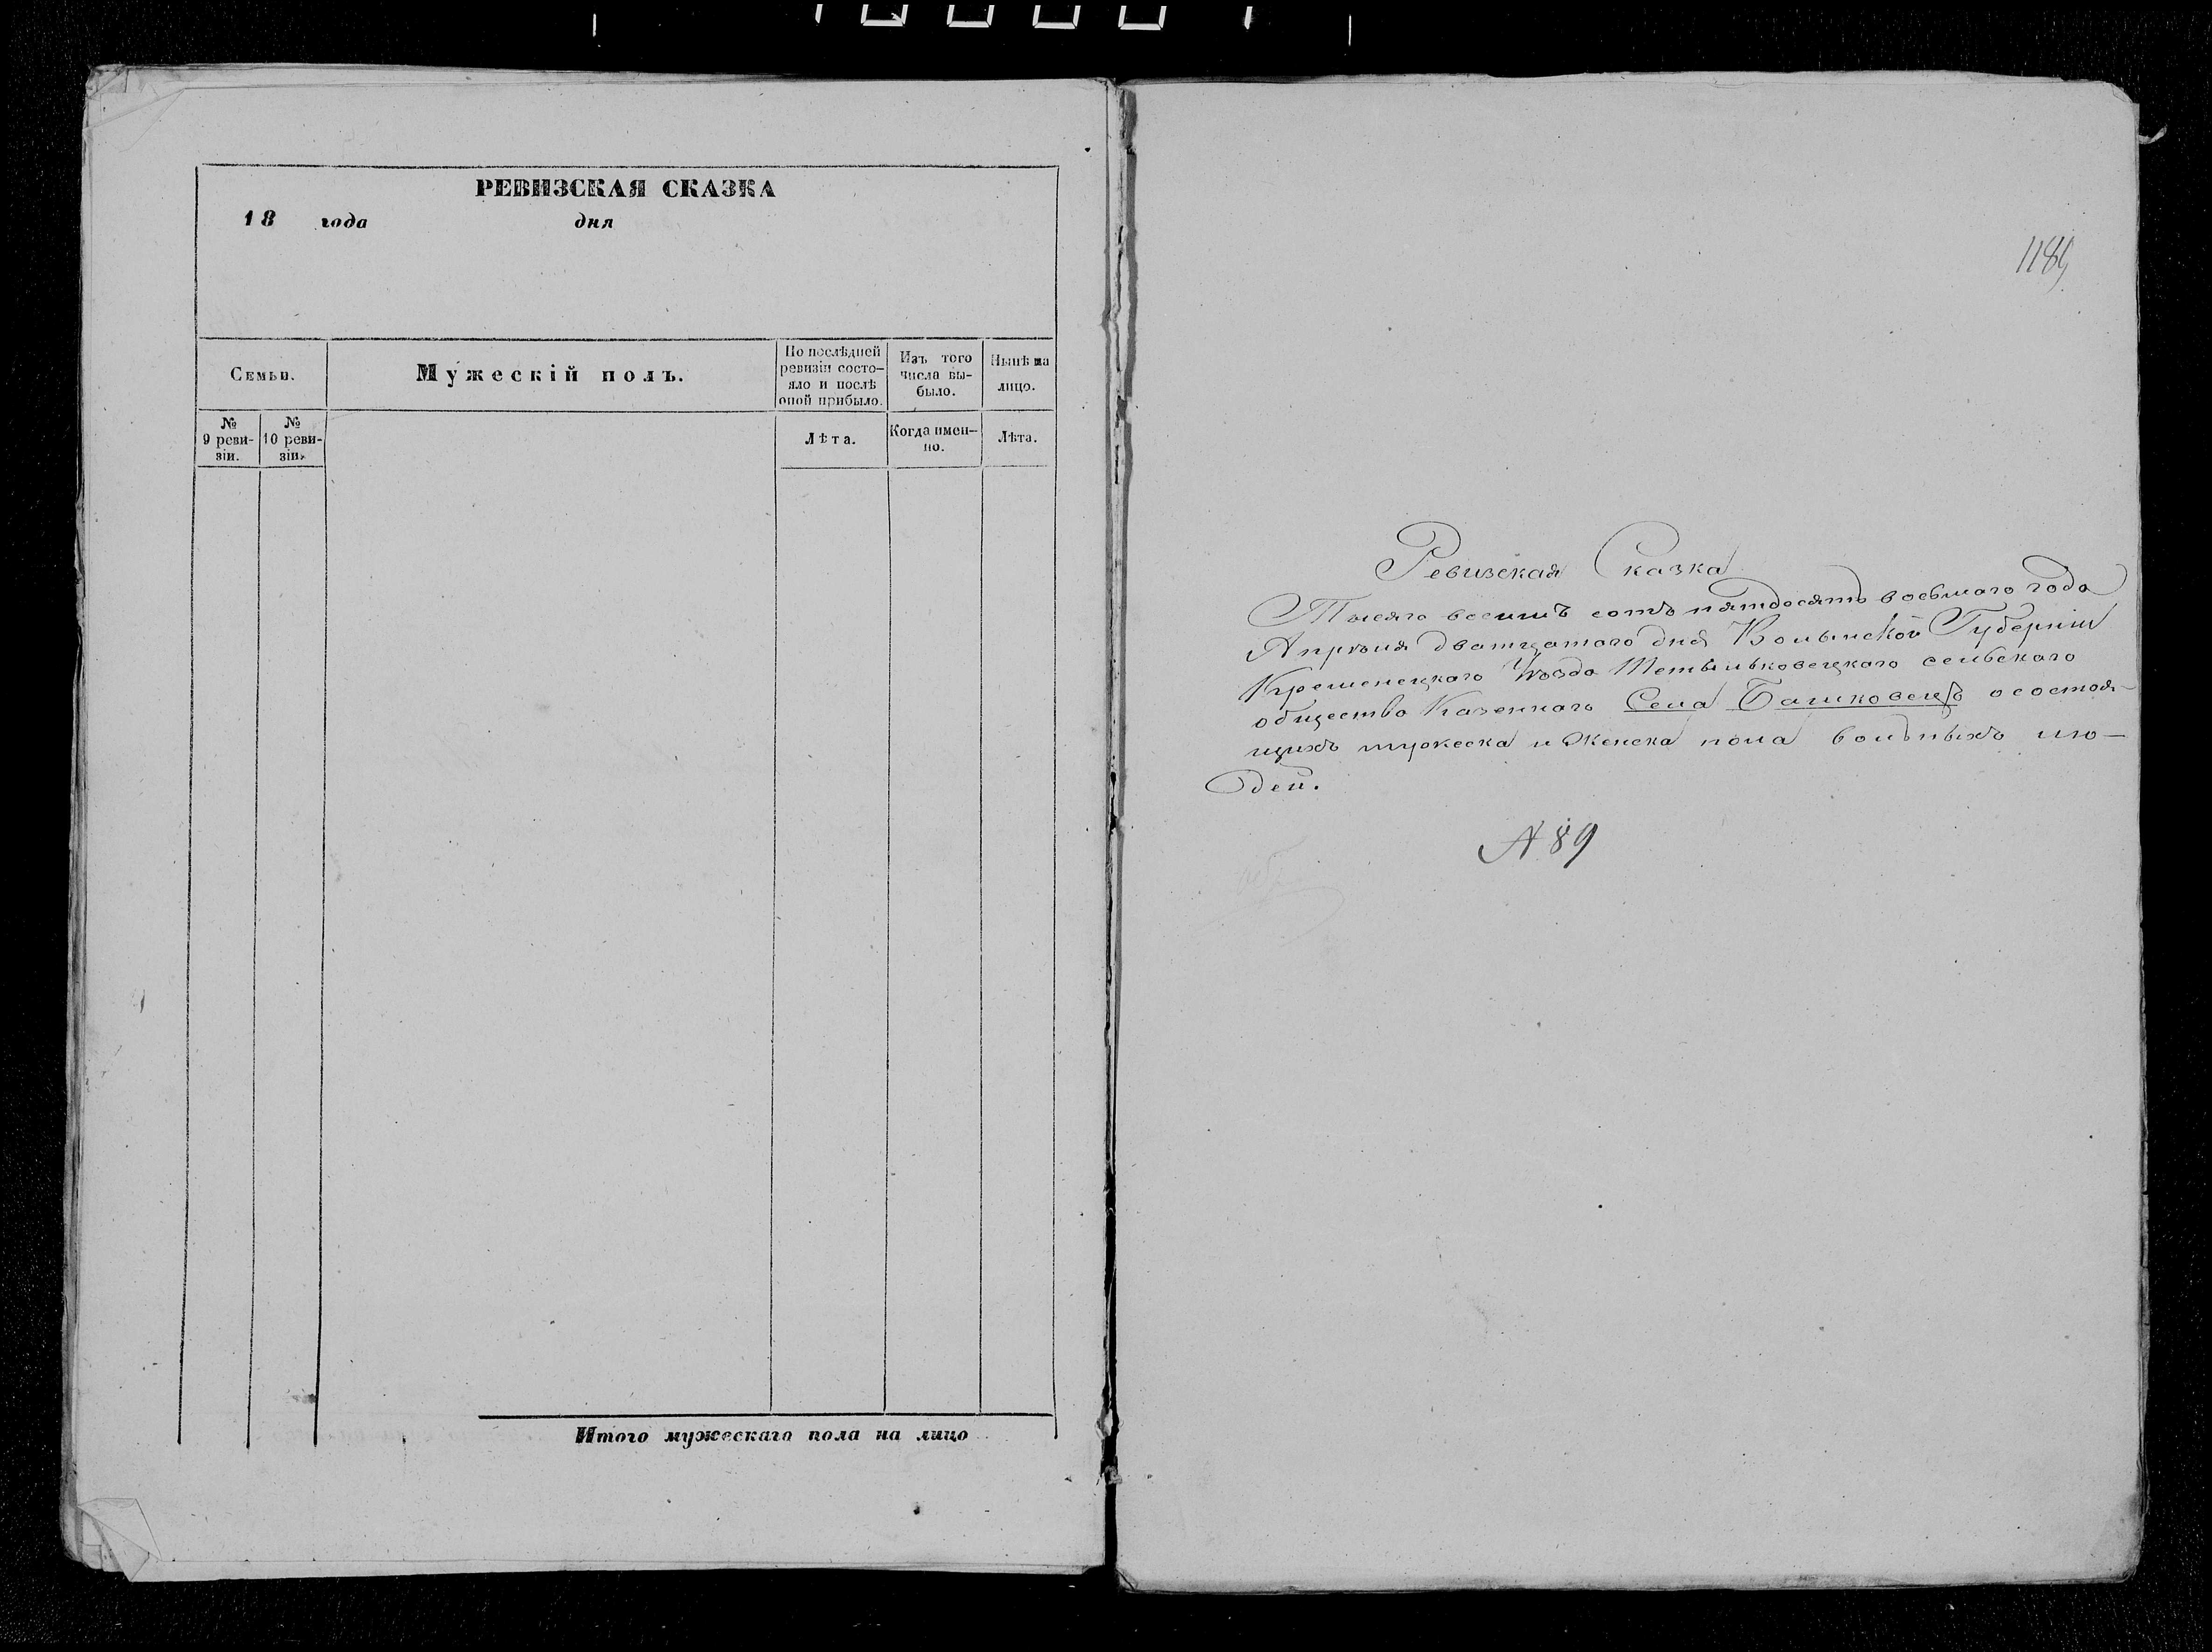 РЕВИЗСКАЯ СКАЗКА
18 года дня
Семьи.
Мужескій полъ.
По послѣдней ревизіи состо-
яло и послѣ оной прибыло.
Изъ того числа вы-
было.
Нынѣ на лицо.
№ 9 реви-
зіи.
№ 10 реви-
зіи.
Лѣта.
Когда имен-
но.
Лѣта.
Итого мужескаго пола на лицо
118
Ревизская Сказка
Тысяча восимъ сотъ пятдосятъ восьмаго года
Апрѣля дватцатаго дня Волынской Губерніи
Кременецкаго Уѣзда сельскаго
общество Казеннаго Села Башковецъ о состоя-
щихъ мужеска и Женска пола вольныхъ лю-
дей.
№ 89